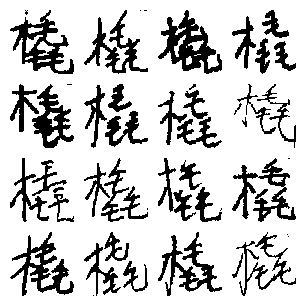 橇橇橇橇
橇橇橇橇
橇橇橇橇
橇橇橇橇